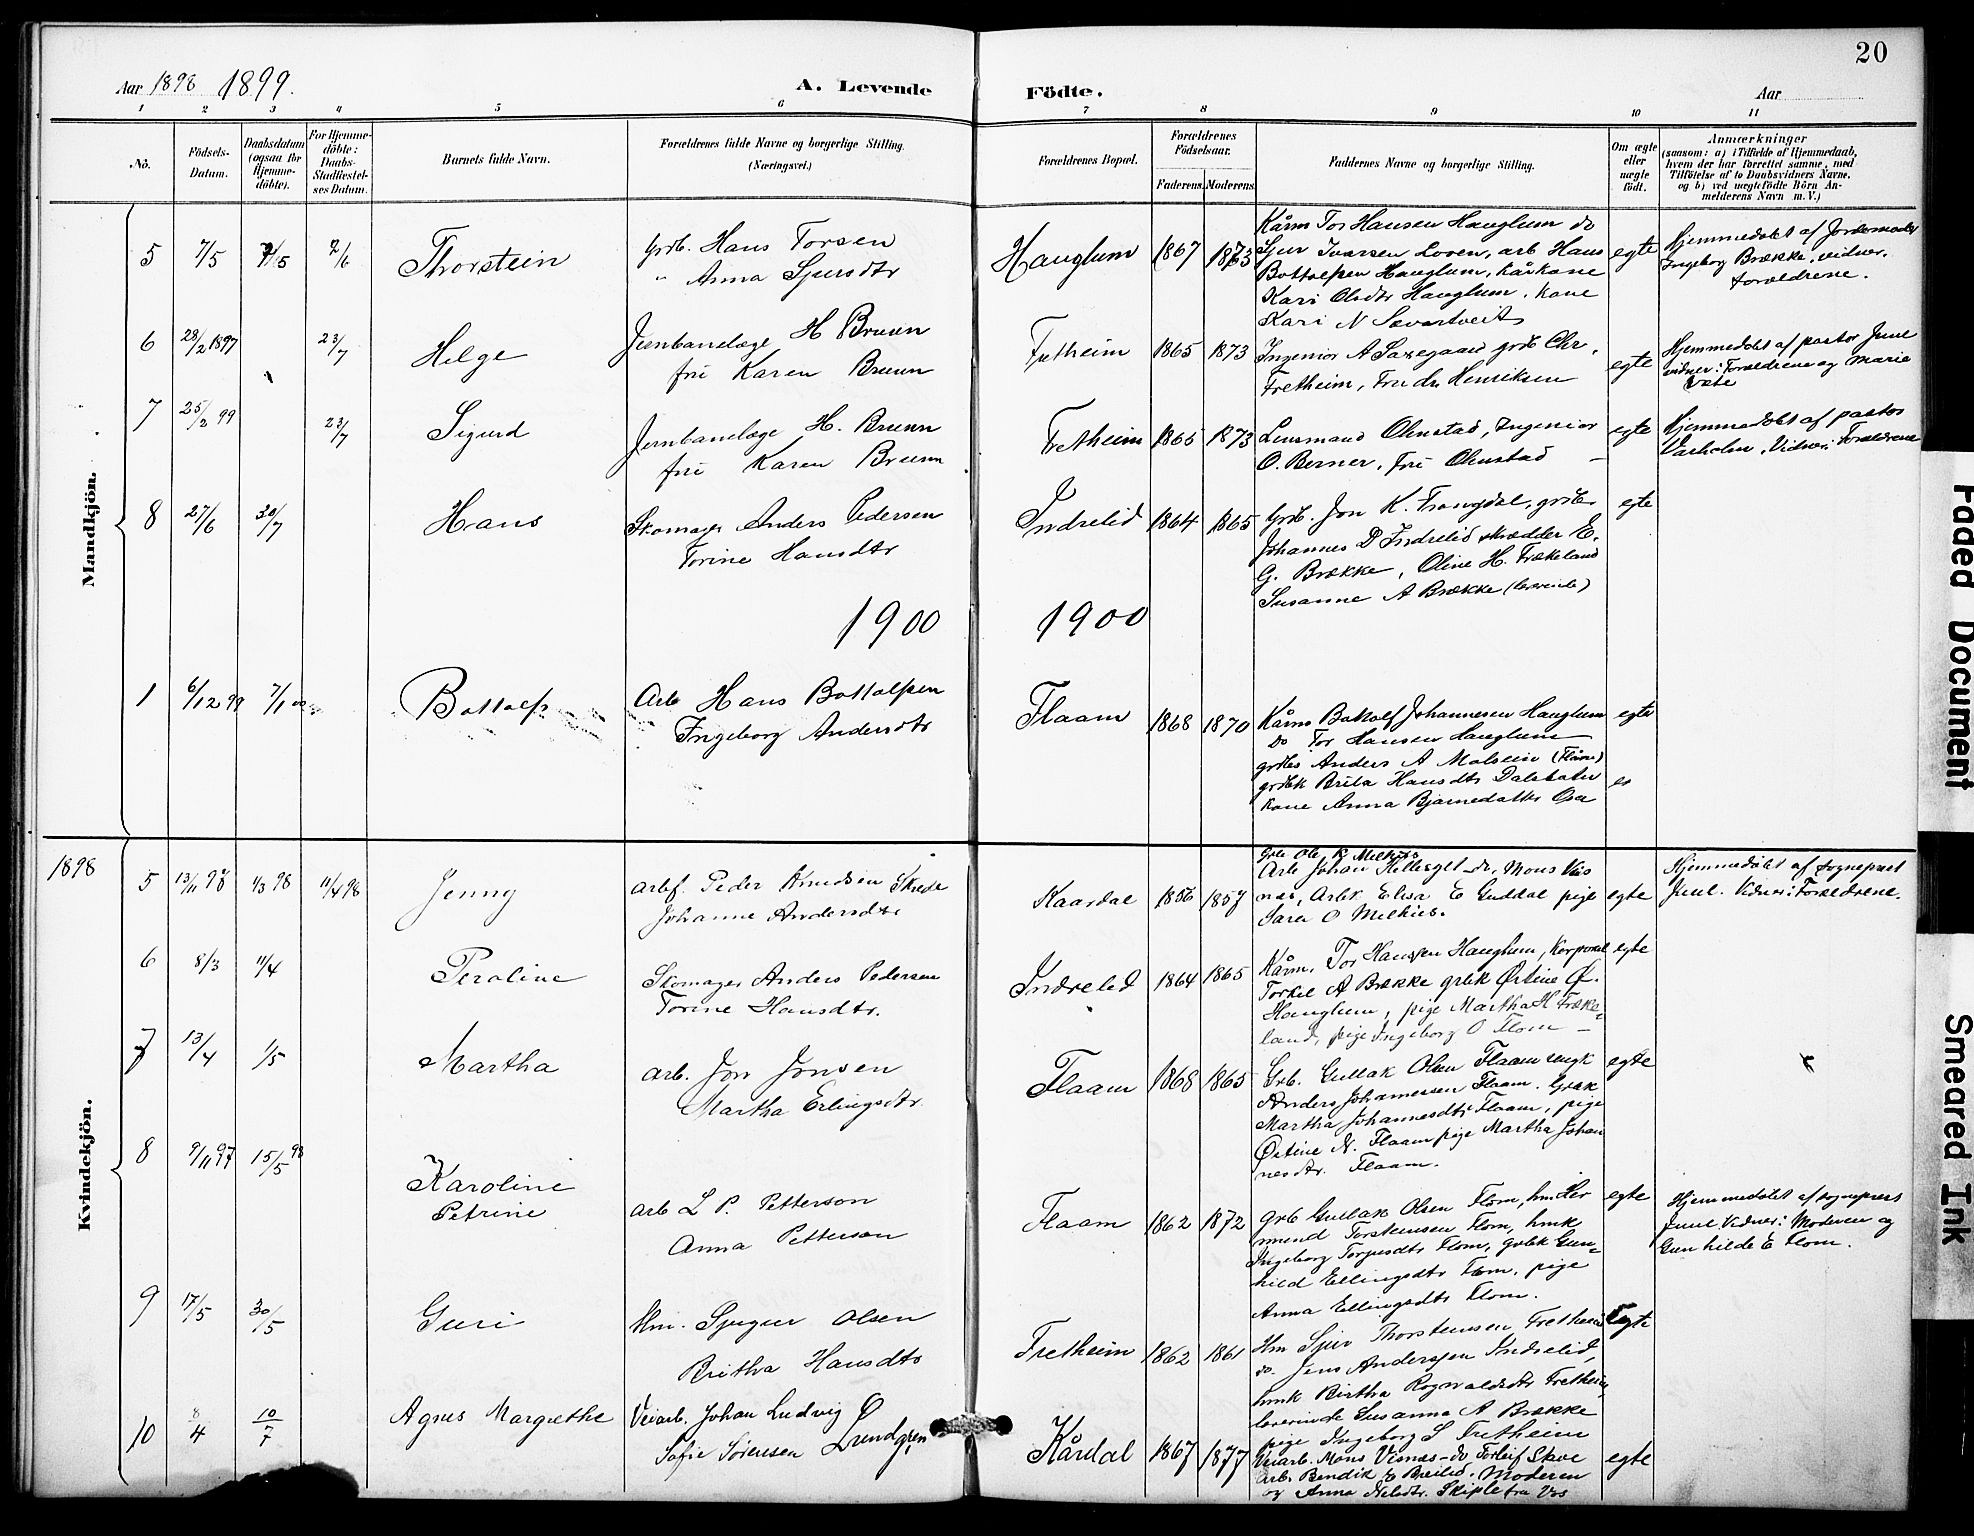 20
Aar 1898 1899.
A. Levende Födte.
Aar
1 2 3 4 5 6 7 8 9 10 11
No.
Födsels-Datum.
Daabsdatum (ogsaa for Hjemme-döbte).
For Hjemme-döbte: Daabs-Stadfæstel-ses Datum.
Barnets fulde Navn.
Forældrenes fulde Navne og borgerlige Stilling. (Næringsvei.)
Forældrenes Bopæl.
Forældrenes Födselsaar.
Faderens. Moderens.
Faddernes Navne og borgerlige Stilling.
Om ægte eller uægte födt.
Anmærkninger
(saasom: a) i Tilfælde af Hjemmedaab, hvem der har forrettet samme, med Tilföielse af to Daabsvidners Navne, og b) ved uægtefödte Börn An-melderens Navn m.V.)
Mandkjön.
5 7/5 7/5 2/6 Thorstein
Grb. Hans Torsen
" Anna Sjursdtr
Hauglum 1867 1873
Kårm Tor Hansen Hauglum do
Sjur Ivarsen Loven, arb Hans
Bottolfsen Hauglum, kårkone
Kari Olsdtr Hauglum. Kone
Kari N
egte
Hjemmedøbt af Jordemoder
Ingeborg Brække, vidner.
forældrene.
6 28/2 1897 23/7 Helge
Jernbanelæge H Bruun
fru Karen Bruun
Fretheim 1865 1873
Ingeniør A Saxegaard grb Chr.
Fretheim, Fru dr Henriksen
egte
Hjemmedøbt af pastor Juul
vidner: Forældrene og Marie
7 25/2 99 23/7 Sigurd
Jernbanelæge H. Bruun
fru Karen Bruun
Fretheim 1865 1873
Lensmand Ohnstad, Ingeniør
O. Berner, Fru Ohnstad
egte
Hjemmedøbt af pastor
Vidner: Forældrene
8 27/6 30/7 Hans
Skomager Anders Pedersen
Torine Hansdtr
Indrelid 1864 1865
Grb. Jon K. grdbr
Johannes D Indrelid skrædder E.
G. Brække, Oline H. Frækeland
Susanne A Brække
egte
1900 1900
1 6/12 99 7/1 00 Bottolf
Arb Hans Bottolfsen
Ingeborg Andersdtr
Flaam 1868 1870
Kårm Bottolf Johannesen Hauglum
do Tor Hansen Hauglum
Anders A
Brita Hansdtr
kone Anna
egte
Kvindekjön.
1898
5 13/11 98 1/3 98 11/4 98 Jenny
arbf. Peder Knudsen
Johanne Andersdtr
Kaardal 1856 1857
Grb Ole K
Arb Johan
Arbk Elisa E Guddal pige
Sara O
egte
Hjemmedøbt af sognepræst
Juul. Vidner: Forældrene.
6 8/3 11/4 Peroline
Skomager Anders Pedersen
Torine Hansdtr.
Indrelid 1864 1865
Kårm. Tor Hansen Hauglum, Korporal
Torkel A Brække grbk Østine Ø.
Hauglum, pige Martha H Fræke-
land, pige Ingeborg O Flom
egte
7 13/4 1/5 Martha
arb. Jon Jonsen
Martha Erlingsdtr.
Flaam 1868 1865
Grb. Gullak Olsen Flaam ungk
Anders Johannesen Flaam. Grbk
Martha Johannesdtr Flaam, pige
Østine N. Flaam pige Martha Johan
nesdtr. Flaam.
egte
8 9/11 97 15/5 98 Karoline
Petrine
arb L P. Petterson
Anna Petterson
Flaam 1862 1872
grb Gullak Olsen Flom,
mund Torsteinsen Flom, hmk
Ingeborg Torgersdtr Flom, grbk Gun-
hild Ellingsdtr Flom, pige
Anna Ellingsdtr Flom.
egte
Hjemmedøbt af sognepræst
Juul. Vidner: Moderen og
Gunhilde E Flom.
9 17/5 30/5 Guri
Hm. Olsen
Britha Hansdtr
Fretheim 1862 1861
Hm Sjur Thorsteinsen Fretheim
do. Jens Andersen Indrelid,
hmk Birtha Rognvaldsdtr Fretheim,
lærerinde Susanna A Brække
pige Ingeborg S Fretheim
Egte
10 8/4 10/7 Agnes Margrethe
Veiarb. Johan Ludvig Ø
Sofie Sørensen Lundgren
Kårdal 1867 1877
Veiarb. Mons Visnæs - do Torleif Skve
Arb. Bendik E Breilid. Moderen
og Anna Nelsdtr. Skiple fra Vos
egte
Faded Document
Smeared Ink